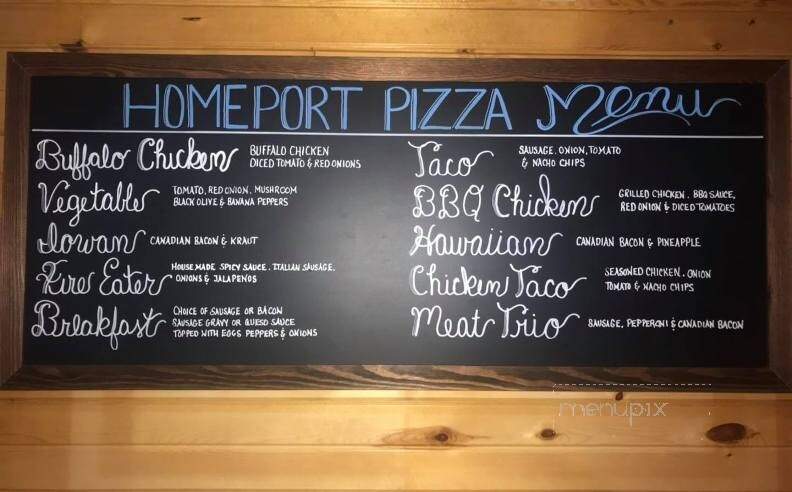 HOMEPORT PIZZA Menu
Buffalo Chicken
BUFFALO CHICKEN
DICED TOMATO & RED ONIONS
Vegetable
TOMATO, RED ONION, MUSHROOM
BLACK OLIVE & BANANA PEPPERS
Iowan
CANADIAN BACON & KRAUT
Fire Eater
HOUSE MADE SPICY SAUCE, ITALIAN SAUSAGE,
ONIONS & JALAPENOS
Breakfast
CHOICE OF SAUSAGE OR BACON
SAUSAGE GRAVY OR QUESO SAUCE
TOPPED WITH EGGS PEPPERS & ONIONS
Taco
SAUSAGE, ONION, TOMATO
& NACHO CHIPS
BBQ Chicken
GRILLED CHICKEN, BBQ SAUCE,
RED ONION & DICED TOMATOES
Hawaiian
CANADIAN BACON & PINEAPPLE
Chicken Taco
SEASONED CHICKEN, ONION
TOMATO & NACHO CHIPS
Meat Trio
SAUSAGE, PEPPERONI & CANADIAN BACON
menupix